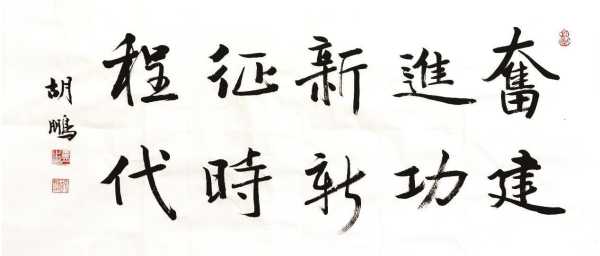 奮進新征程
建功新時代
胡鵬